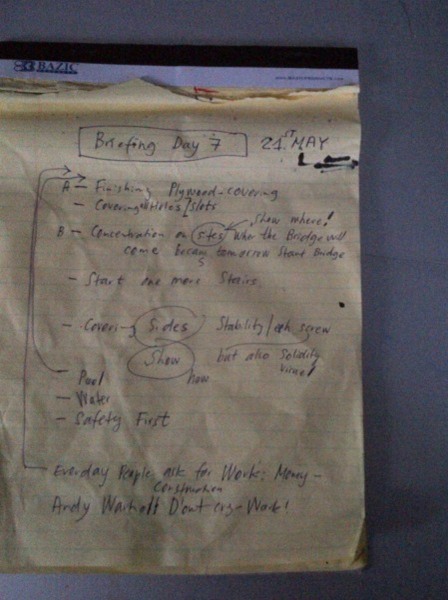 BAZIC
Briefing Day 7 21ST MAY
A - Finishing Plywood-covering
- Covering Holes/slots
Show where!
B - Concentration on sides wher the Bridge will
come becaus tomorrow Start Bridge
- Start one more Stairs
- Covering Sides Stability/ screw
Show how but also Solidity
visual
Pool
- Water
- Safety First
Everyday People ask for Work: Money -
Construction
Andy Warholt Don't cry - Work!